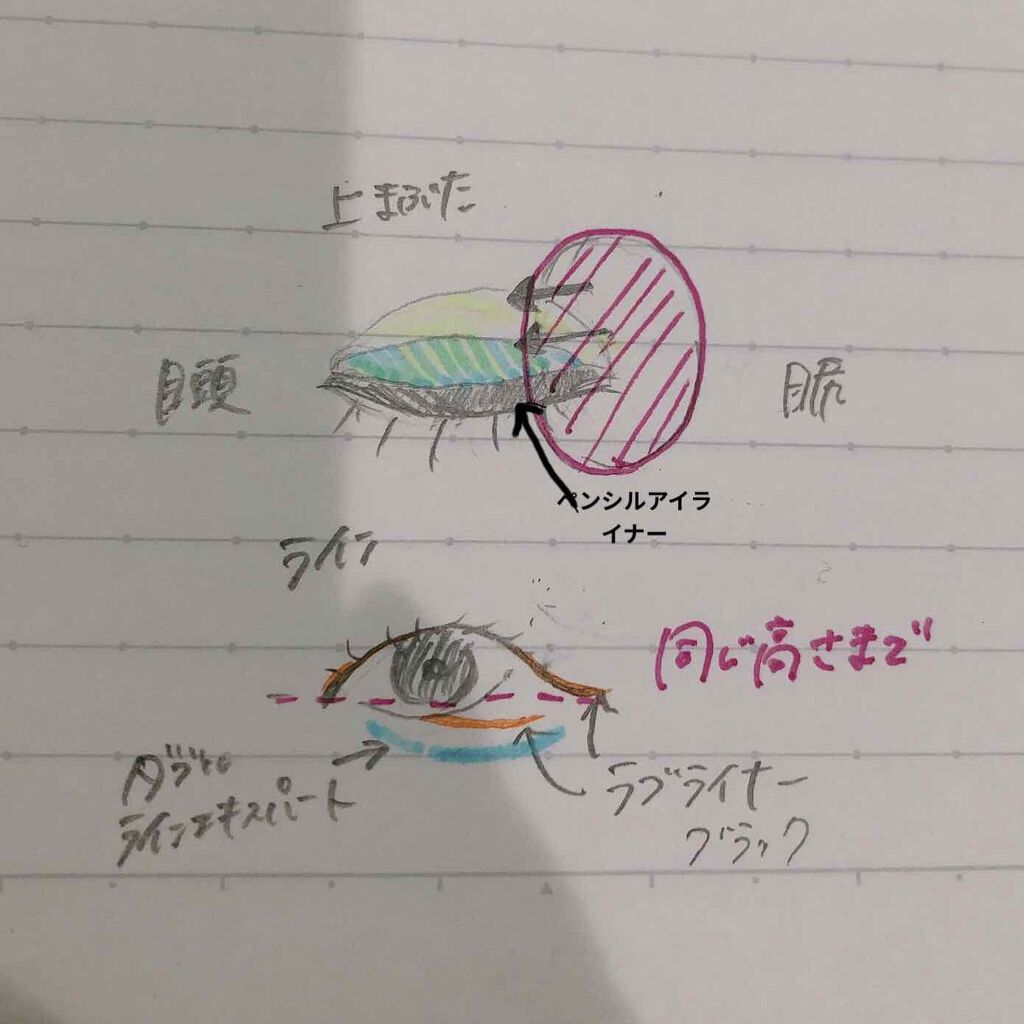 上まぶた
目頭
目尻
ペンシルアイラ
イナー
ライン
同じ高さまで
ダブル
ラインエキスパート
ラブライナー
ブラック